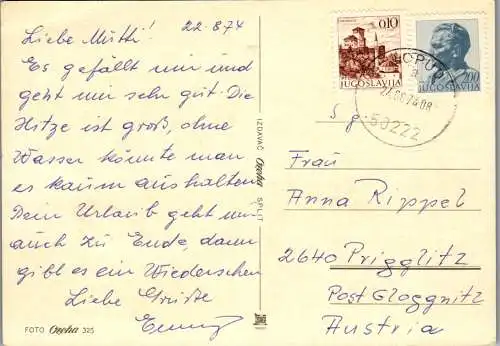 22.8.74
Liebe Mutti!
Es gefällt mir und
geht mir sehr gut. Die
Hitze ist groß, ohne
Wasser könnte man
es kaum aushalten
Dein Urlaub geht nun
auch zu Ende, dann
gibt es ein Wiedersehen
Liebe Grüße
FOTO Oneha 325
IZDAVAČ Oneha SPLIT
0,10
JUGOSLAVIJA
2,00
JUGOSLAVIJA
LOPUD
50222
S g.
Frau
Anna Rippel
2640 Prigglitz
Post Gloggnitz
Austria